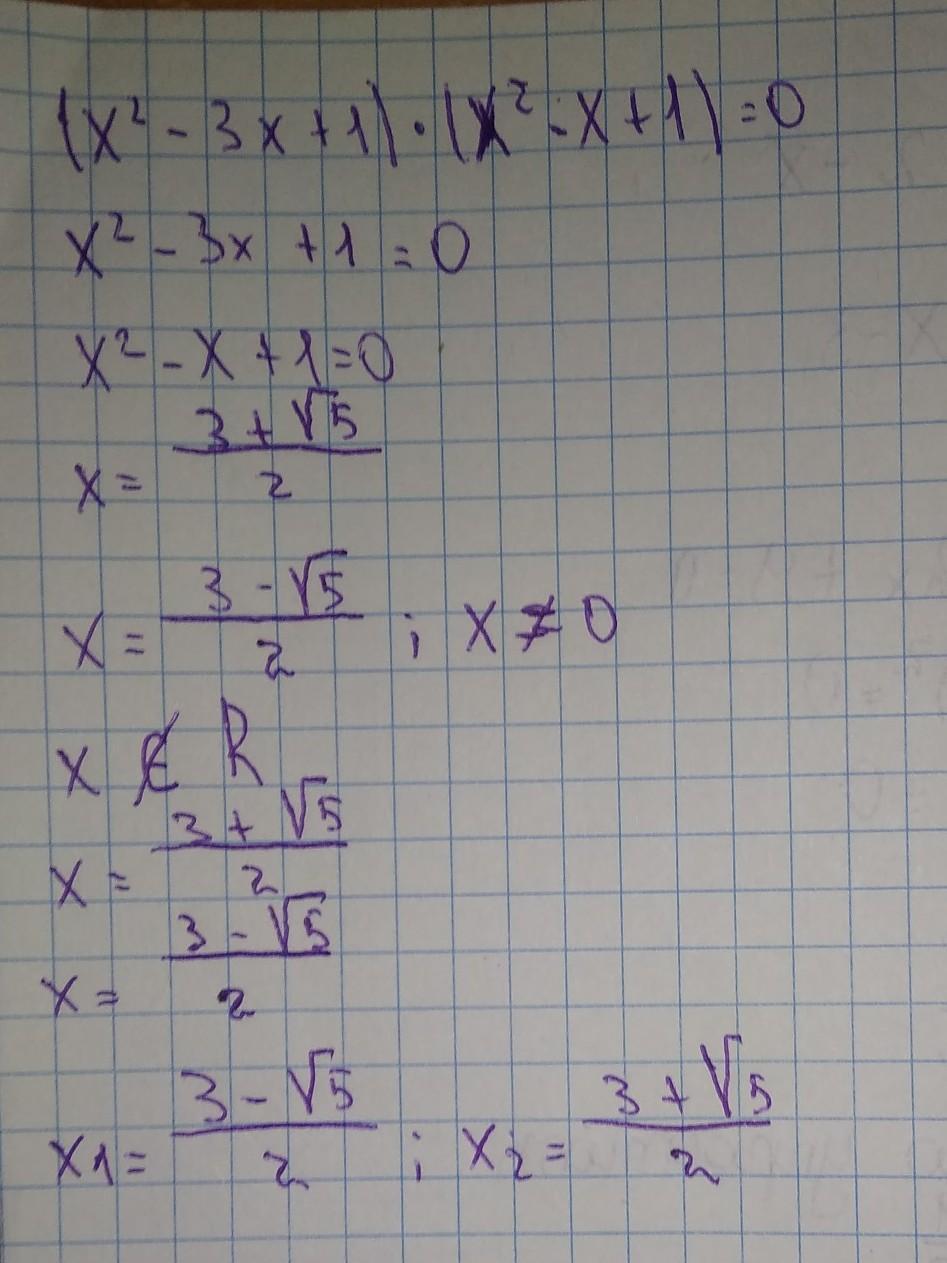 (x² - 3x + 1) · (x² - x + 1) = 0
x² - 3x + 1 = 0
x² - x + 1 = 0
x = (3 + √5)/2
x = (3 - √5)/2 ; x ≠ 0
x ∉ R
x = (3 + √5)/2
x = (3 - √5)/2
x1 = (3 - √5)/2 ; x2 = (3 + √5)/2